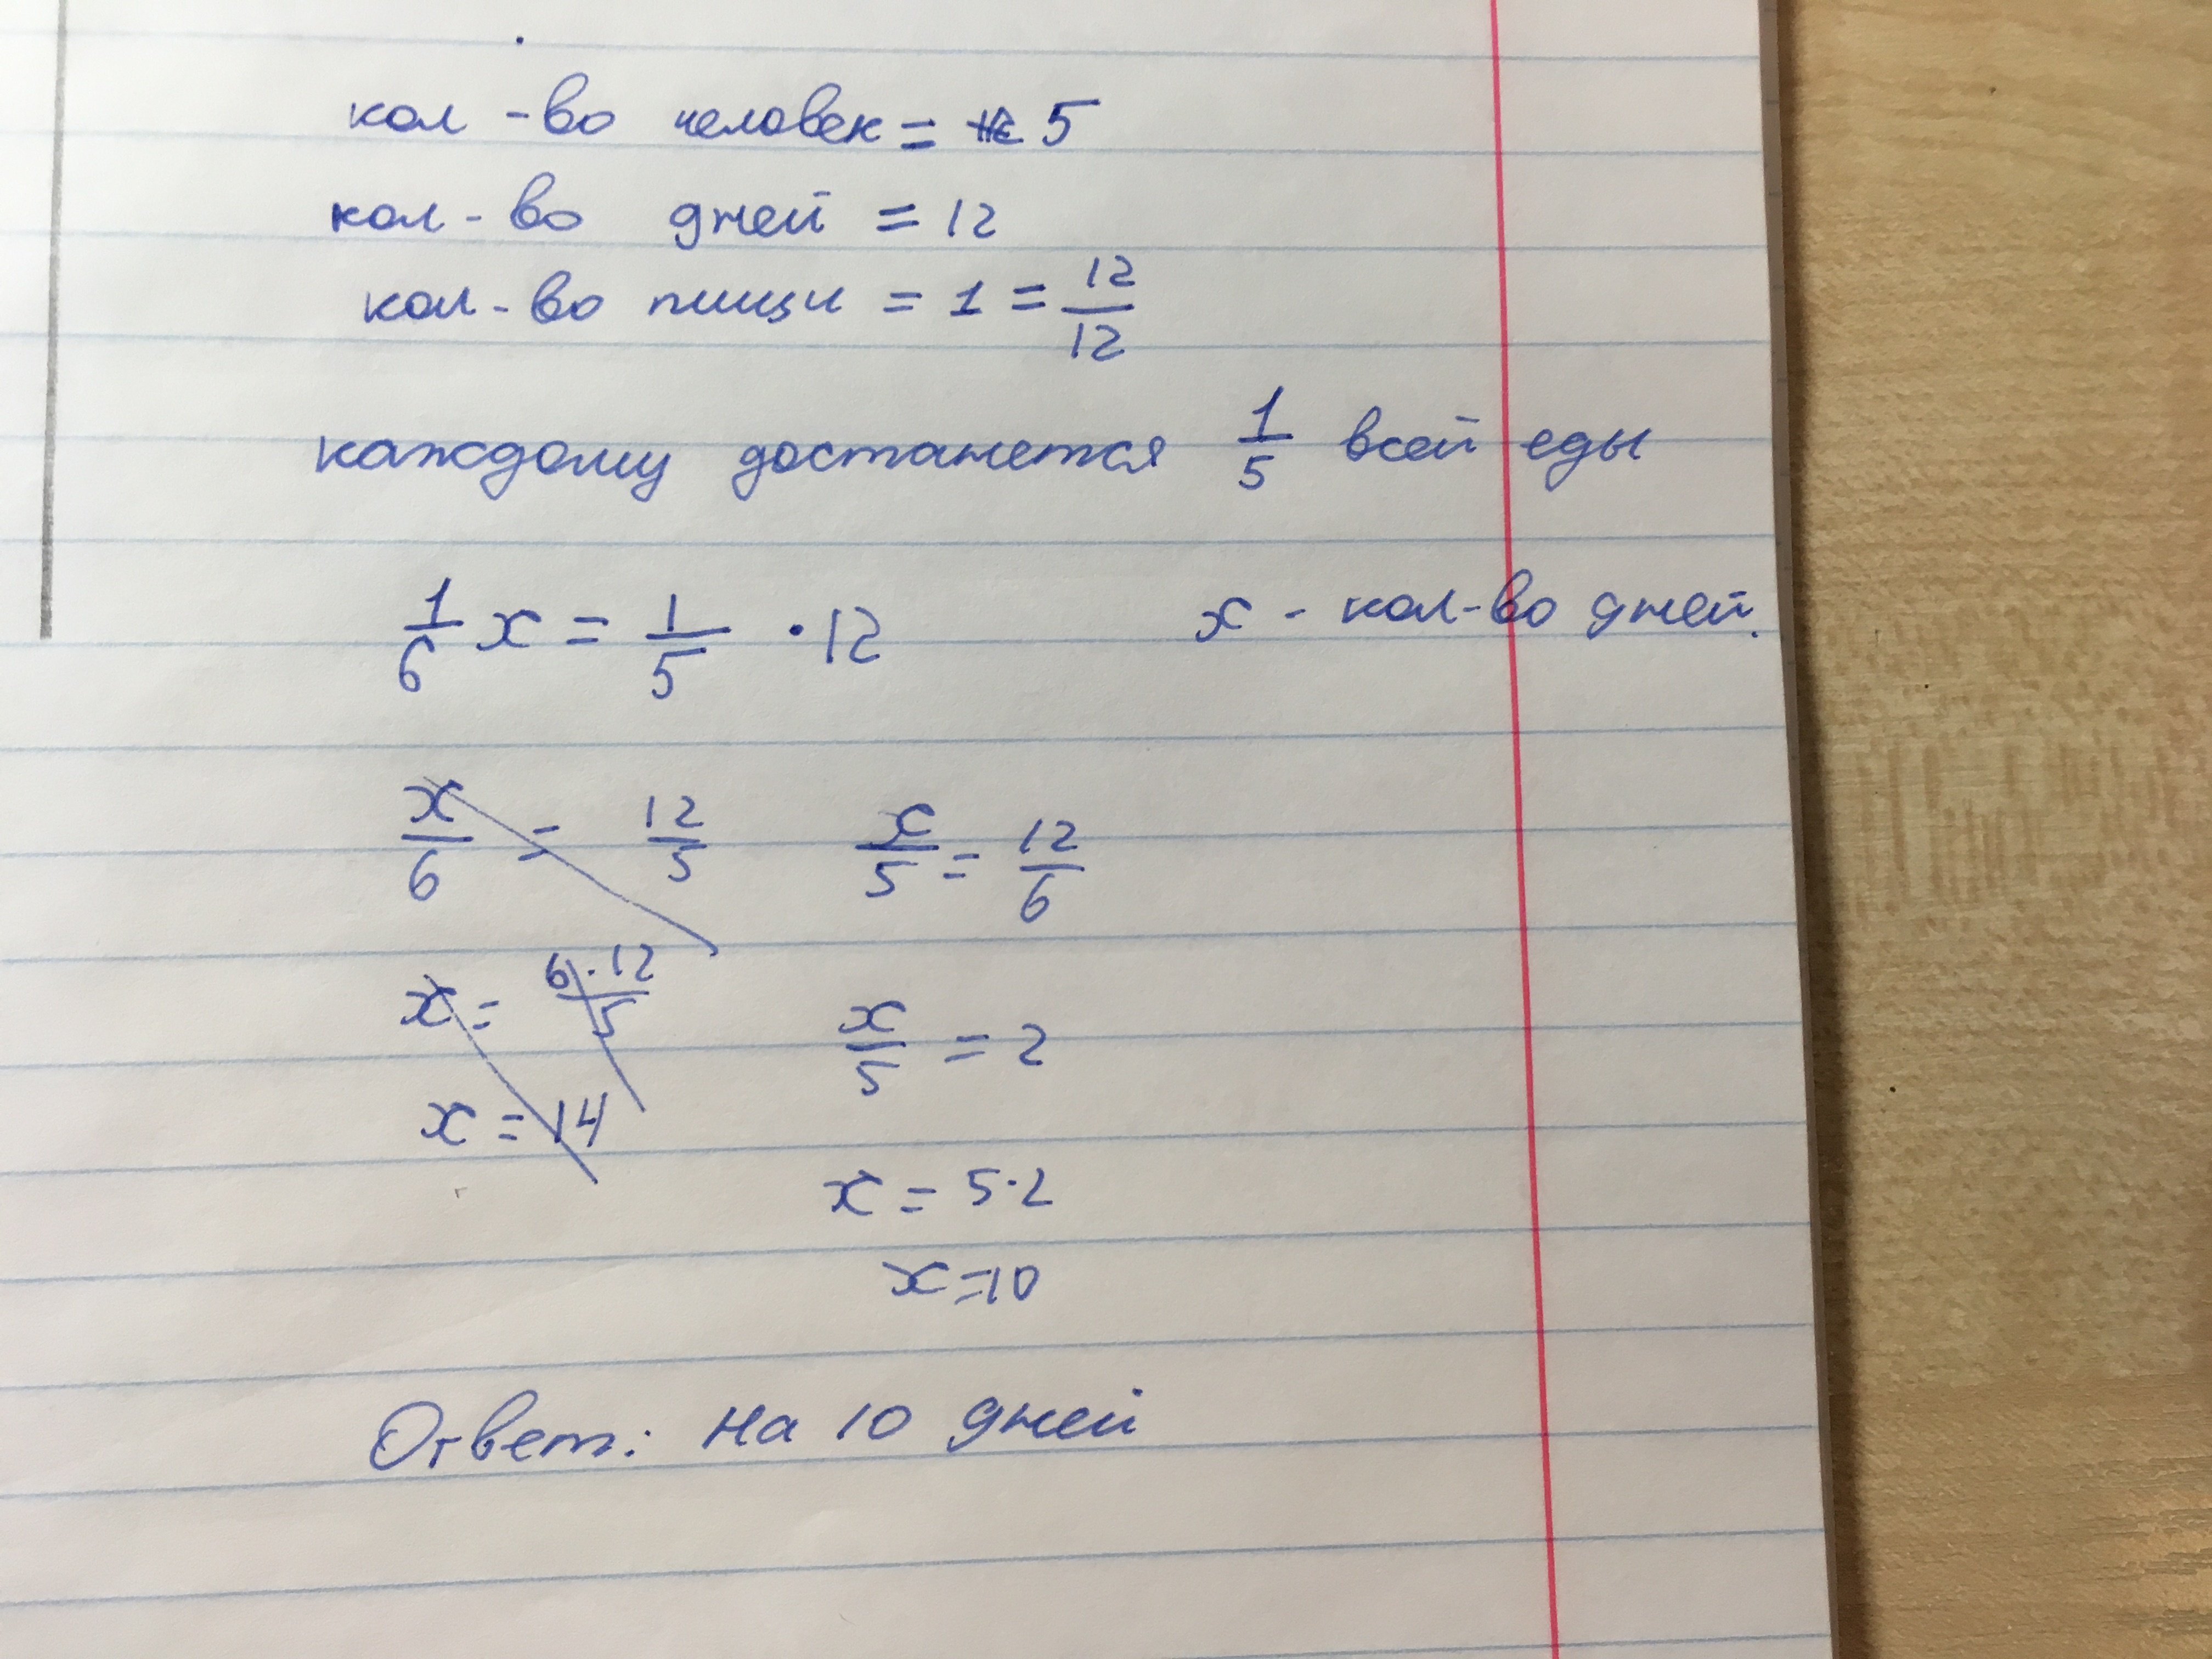 кол-во человек = 5
кол-во дней = 12
кол-во пищи = 1 = 12/12
каждому достанется 1/5 всей еды
1/6 x = 1/5 · 12 x - кол-во дней.
x/6 = 12/5 x/5 = 12/6
x = 6·12/5 x/5 = 2
x = 14
x = 5·2
x = 10
Ответ: на 10 дней